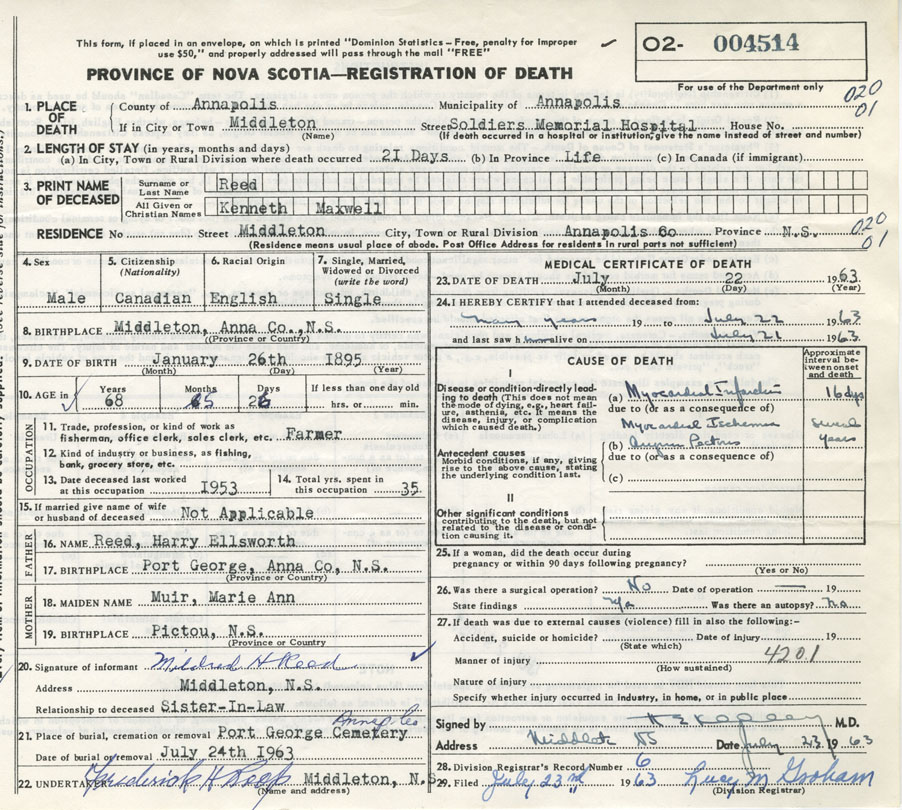 This form, if placed in an envelope, on which is printed "Dominion Statistics – Free, penalty for improper
use $50," and properly addressed will pass through the mail "FREE"
O2- 004514
For use of the Department only
PROVINCE OF NOVA SCOTIA—REGISTRATION OF DEATH
020
01
1. PLACE OF DEATH
County of Annapolis Municipality of Annapolis
If in City or Town Middleton Street Soldiers Memorial Hospital House No.
(Name) (If death occurred in a hospital or institution, give the name instead of street and number)
2. LENGTH OF STAY (in years, months and days)
(a) In City, Town or Rural Division where death occurred 21 Days (b) In Province Life (c) In Canada (if immigrant)
3. PRINT NAME OF DECEASED
Surname or Last Name Reed
All Given or Christian Names Kenneth Maxwell
RESIDENCE No Street Middleton City, Town or Rural Division Annapolis Co Province N.S. 020
(Residence means usual place of abode. Post Office Address for residents in rural parts not sufficient) 01
4. Sex Male
5. Citizenship (Nationality) Canadian
6. Racial Origin English
7. Single, Married, Widowed or Divorced (write the word) Single
8. BIRTHPLACE Middleton, Anna Co., N.S.
(Province or Country)
9. DATE OF BIRTH January 26th 1895
(Month) (Day) (Year)
10. AGE in Years 68 Months 5 Days 26 If less than one day old hrs. or min.
OCCUPATION
11. Trade, profession, or kind of work as
fisherman, office clerk, sales clerk, etc. Farmer
12. Kind of industry or business, as fishing,
bank, grocery store, etc.
13. Date deceased last worked at this occupation 1953
14. Total yrs. spent in this occupation 35
15. If married give name of wife
or husband of deceased Not Applicable
FATHER
16. NAME Reed, Harry Ellsworth
17. BIRTHPLACE Port George, Anna Co, N.S.
(Province or Country)
MOTHER
18. MAIDEN NAME Muir, Marie Ann
19. BIRTHPLACE Pictou, N.S.
(Province or Country)
20. Signature of informant Mildred H Reed
Address Middleton, N.S.
Relationship to deceased Sister-In-Law
Annap Co
21. Place of burial, cremation or removal Port George Cemetery
Date of burial or removal July 24th 1963
22. UNDERTAKER Frederick H Middleton, N.S.
(Name and address)
MEDICAL CERTIFICATE OF DEATH
23. DATE OF DEATH July 22 1963
(Month) (Day) (Year)
24. I HEREBY CERTIFY that I attended deceased from:
many years 19 to July 22 1963
and last saw him alive on July 21 1963
CAUSE OF DEATH
Approximate interval between onset and death
I
Disease or condition directly leading to death (This does not mean the mode of dying, e.g., heart failure, asthenia, etc. It means the disease, injury, or complication which caused death.)
(a) Myocardial Infarction 16 dys
due to (or as a consequence of)
Myocardial Ischemia several years
(b) Angina Pectoris
due to (or as a consequence of)
Antecedent causes
Morbid conditions, if any, giving rise to the above cause, stating the underlying condition last.
(c)
II
Other significant conditions
contributing to the death, but not related to the disease or condition causing it.
25. If a woman, did the death occur during
pregnancy or within 90 days following pregnancy?
(Yes or No)
26. Was there a surgical operation? No Date of operation — 19
State findings n/a Was there an autopsy? no
27. If death was due to external causes (violence) fill in also the following:-
Accident, suicide or homicide? Date of injury 19
(State which)
Manner of injury 4201
(How sustained)
Nature of injury
Specify whether injury occurred in industry, in home, or in public place
Signed by M.D.
Address Middleton NS Date July 23 1963
28. Division Registrar's Record Number 6
29. Filed July 23rd 1963 Lucy M Graham
(Division Registrar)